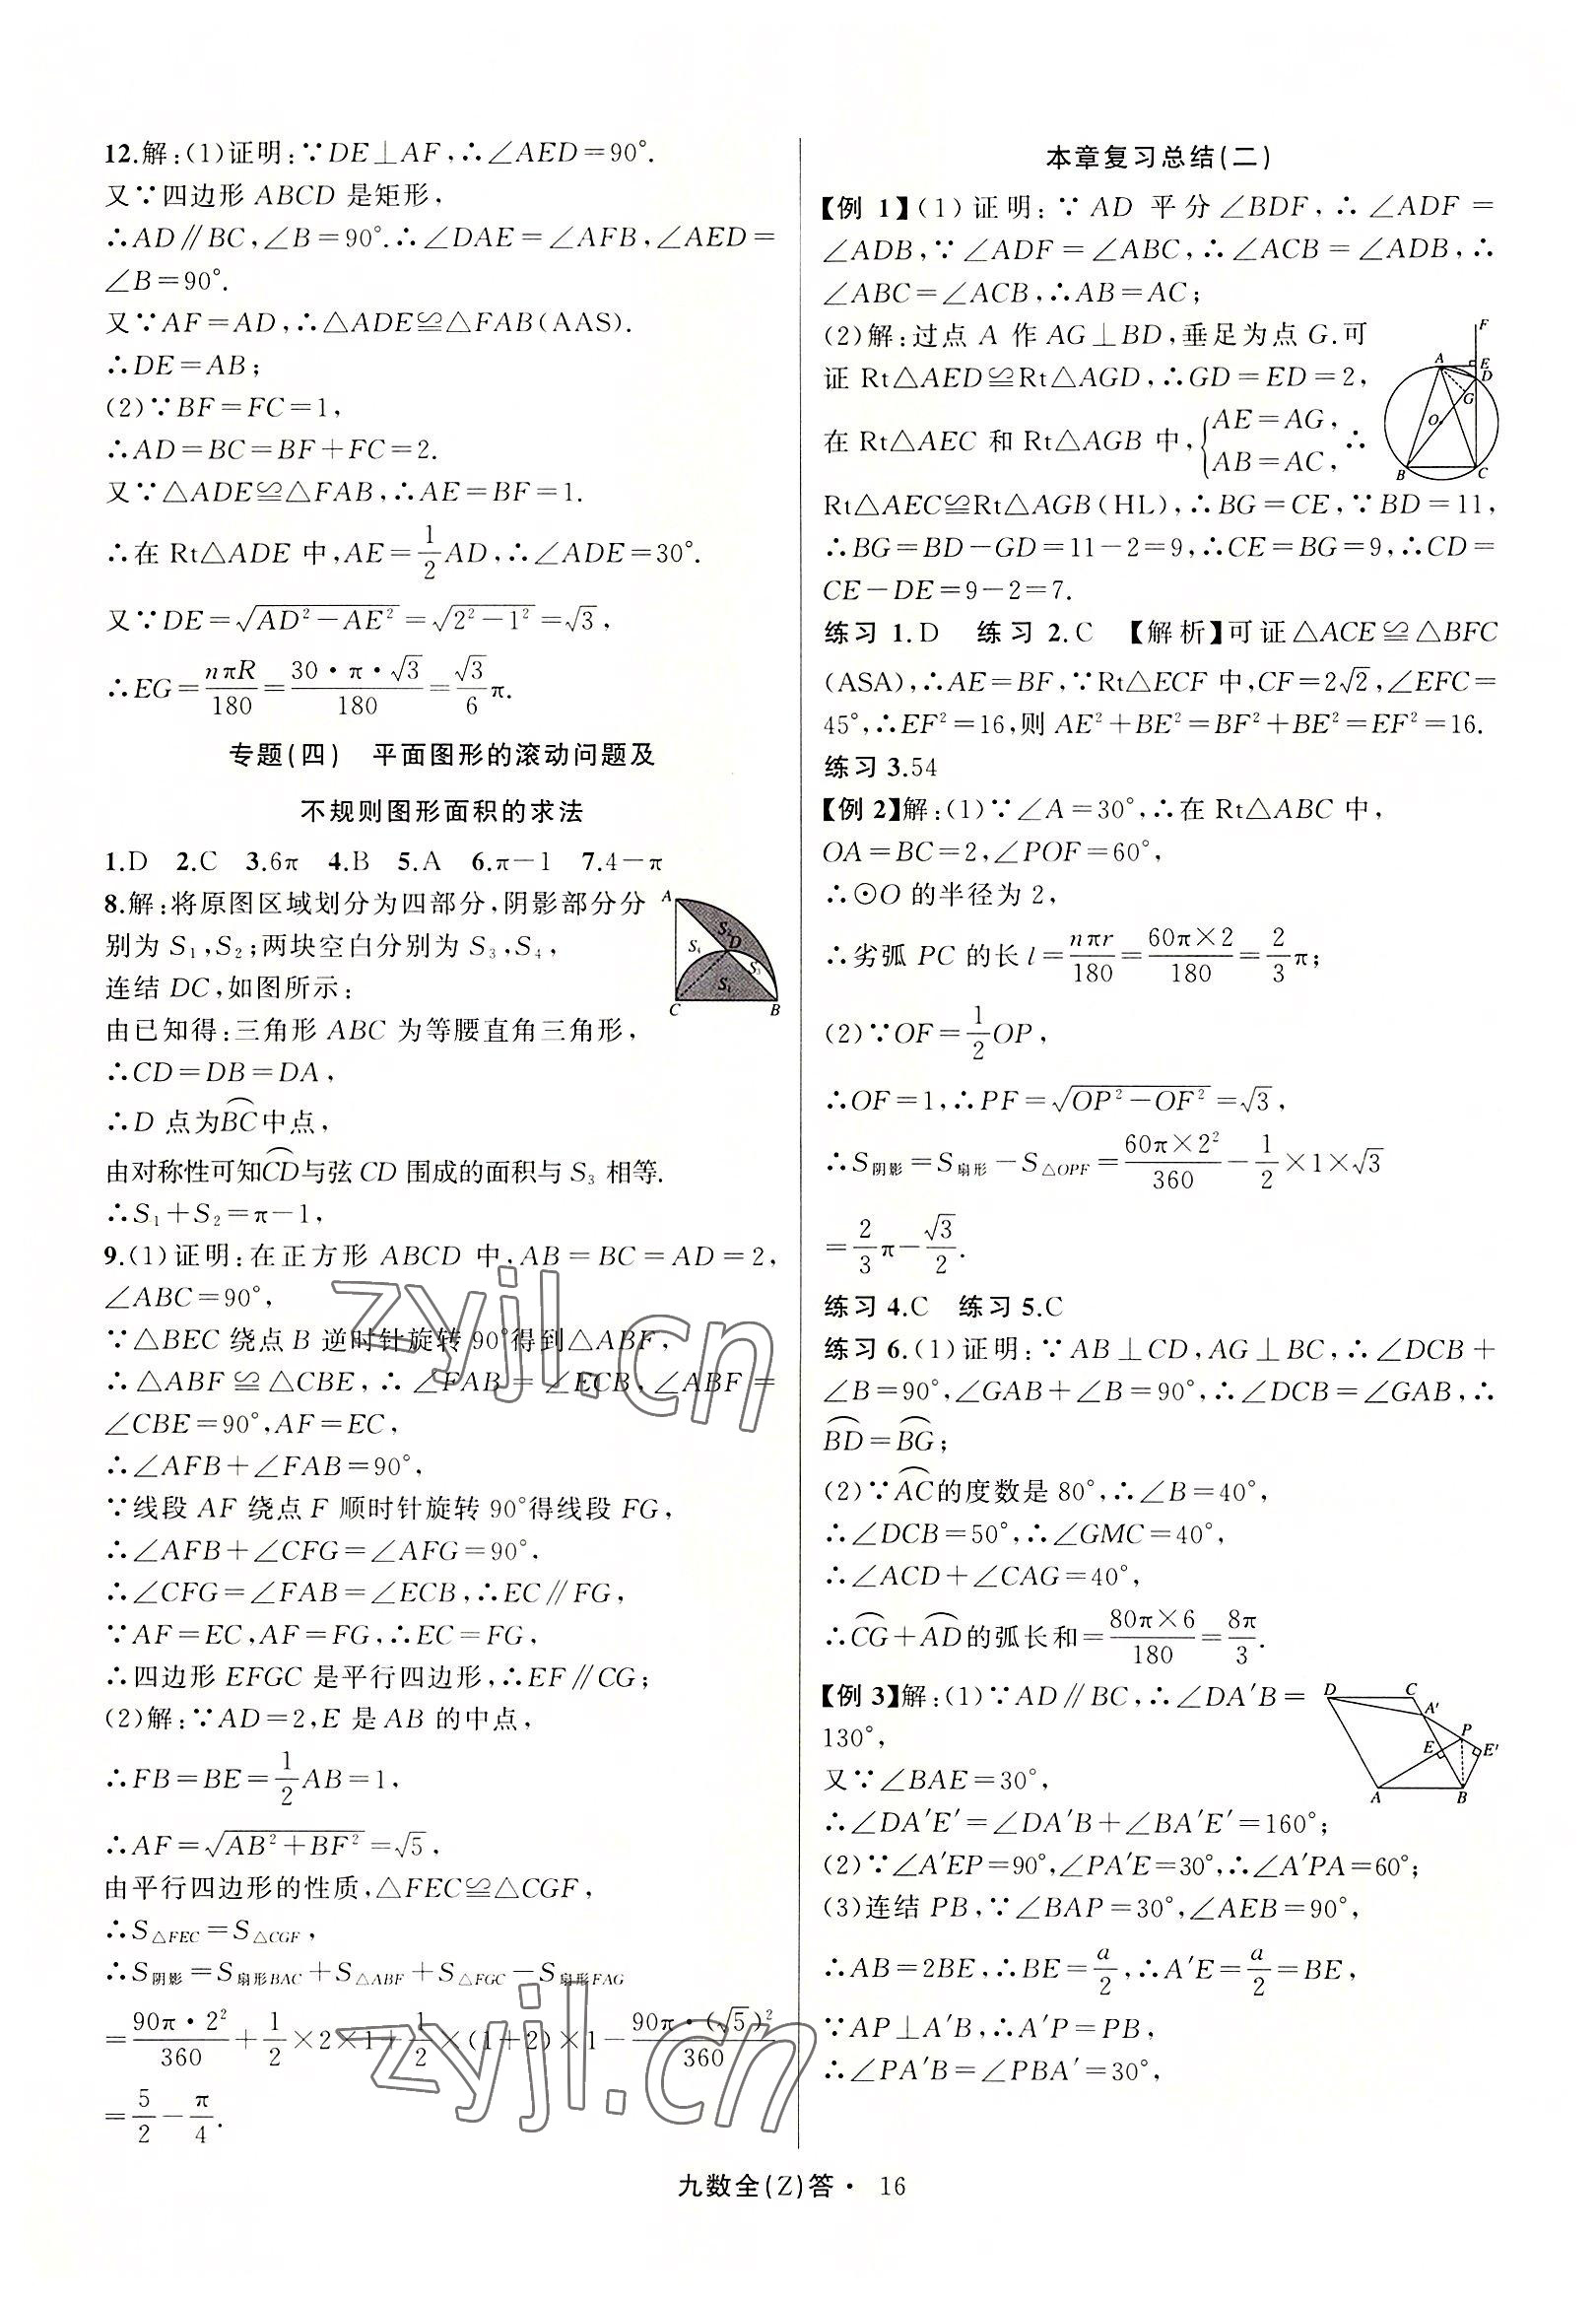 12.解:(1)证明:∵DE⊥AF,∴∠AED=90°.
又∵四边形 ABCD 是矩形,
∴AD∥BC,∠B=90°.∴∠DAE=∠AFB,∠AED=
∠B=90°.
又∵AF=AD,∴△ADE≌△FAB(AAS).
∴DE=AB;
(2)∵BF=FC=1,
∴AD=BC=BF+FC=2.
又∵△ADE≌△FAB,∴AE=BF=1.
∴在 Rt△ADE 中,AE=1/2AD,∴∠ADE=30°.
又∵DE=√(AD²-AE²)=√(2²-1²)=√3,
∴EG=nπR/180=30·π·√3/180=√3/6π.
专题(四) 平面图形的滚动问题及
不规则图形面积的求法
1.D 2.C 3.6π 4.B 5.A 6.π-1 7.4-π
8.解:将原图区域划分为四部分,阴影部分分
别为 S₁,S₂;两块空白分别为 S₃,S₄,
连结 DC,如图所示:
由已知得:三角形 ABC 为等腰直角三角形,
∴CD=DB=DA,
∴D 点为⌒BC中点,
由对称性可知⌒CD与弦 CD 围成的面积与 S₃ 相等.
∴S₁+S₂=π-1,
A
S₂
D
S₄
S₃
S₁
C
B
9.(1)证明:在正方形 ABCD 中,AB=BC=AD=2,
∠ABC=90°,
∵△BEC 绕点 B 逆时针旋转 90°得到△ABF,
∴△ABF≌△CBE,∴∠FAB=∠ECB,∠ABF=
∠CBE=90°,AF=EC,
∴∠AFB+∠FAB=90°,
∵线段 AF 绕点 F 顺时针旋转 90°得线段 FG,
∴∠AFB+∠CFG=∠AFG=90°,
∴∠CFG=∠FAB=∠ECB,∴EC∥FG,
∵AF=EC,AF=FG,∴EC=FG,
∴四边形 EFGC 是平行四边形,∴EF∥CG;
(2)解:∵AD=2,E 是 AB 的中点,
∴FB=BE=1/2AB=1,
∴AF=√(AB²+BF²)=√5,
由平行四边形的性质,△FEC≌△CGF,
∴S△FEC=S△CGF,
∴S阴影=S扇形BAC+S△ABF+S△FGC-S扇形FAG
=90π·2²/360+1/2×2×1+1/2×(1+2)×1-90π·(√5)²/360
=5/2-π/4.
本章复习总结(二)
【例 1】(1)证明:∵AD 平分∠BDF,∴∠ADF=
∠ADB,∵∠ADF=∠ABC,∴∠ACB=∠ADB,∴
∠ABC=∠ACB,∴AB=AC;
(2)解:过点 A 作 AG⊥BD,垂足为点 G.可
证 Rt△AED≌Rt△AGD,∴GD=ED=2,
在 Rt△AEC 和 Rt△AGB 中,{AE=AG, AB=AC,∴
F
A
E
D
G
O
B
C
Rt△AEC≌Rt△AGB(HL),∴BG=CE,∵BD=11,
∴BG=BD-GD=11-2=9,∴CE=BG=9,∴CD=
CE-DE=9-2=7.
练习 1.D 练习 2.C 【解析】可证△ACE≌△BFC
(ASA),∴AE=BF,∵Rt△ECF 中,CF=2√2,∠EFC=
45°,∴EF²=16,则 AE²+BE²=BF²+BE²=EF²=16.
练习 3.54
【例 2】解:(1)∵∠A=30°,∴在 Rt△ABC 中,
OA=BC=2,∠POF=60°,
∴⊙O 的半径为 2,
∴劣弧 PC 的长 l=nπr/180=60π×2/180=2/3π;
(2)∵OF=1/2OP,
∴OF=1,∴PF=√(OP²-OF²)=√3,
∴S阴影=S扇形-S△OPF=60π×2²/360-1/2×1×√3
=2/3π-√3/2.
练习 4.C 练习 5.C
练习 6.(1)证明:∵AB⊥CD,AG⊥BC,∴∠DCB+
∠B=90°,∠GAB+∠B=90°,∴∠DCB=∠GAB,∴
⌒BD=⌒BG;
(2)∵⌒AC的度数是 80°,∴∠B=40°,
∴∠DCB=50°,∴∠GMC=40°,
∴∠ACD+∠CAG=40°,
∴⌒CG+⌒AD的弧长和=80π×6/180=8π/3.
【例 3】解:(1)∵AD∥BC,∴∠DA′B=
130°,
又∵∠BAE=30°,
∴∠DA′E′=∠DA′B+∠BA′E′=160°;
D
C
A′
P
E
E′
A
B
(2)∵∠A′EP=90°,∠PA′E=30°,∴∠A′PA=60°;
(3)连结 PB,∵∠BAP=30°,∠AEB=90°,
∴AB=2BE,∴BE=a/2,∴A′E=a/2=BE,
∵AP⊥A′B,∴A′P=PB,
∴∠PA′B=∠PBA′=30°,
九数全(Z)答· 16
zyjl.cn
zyjl.cn